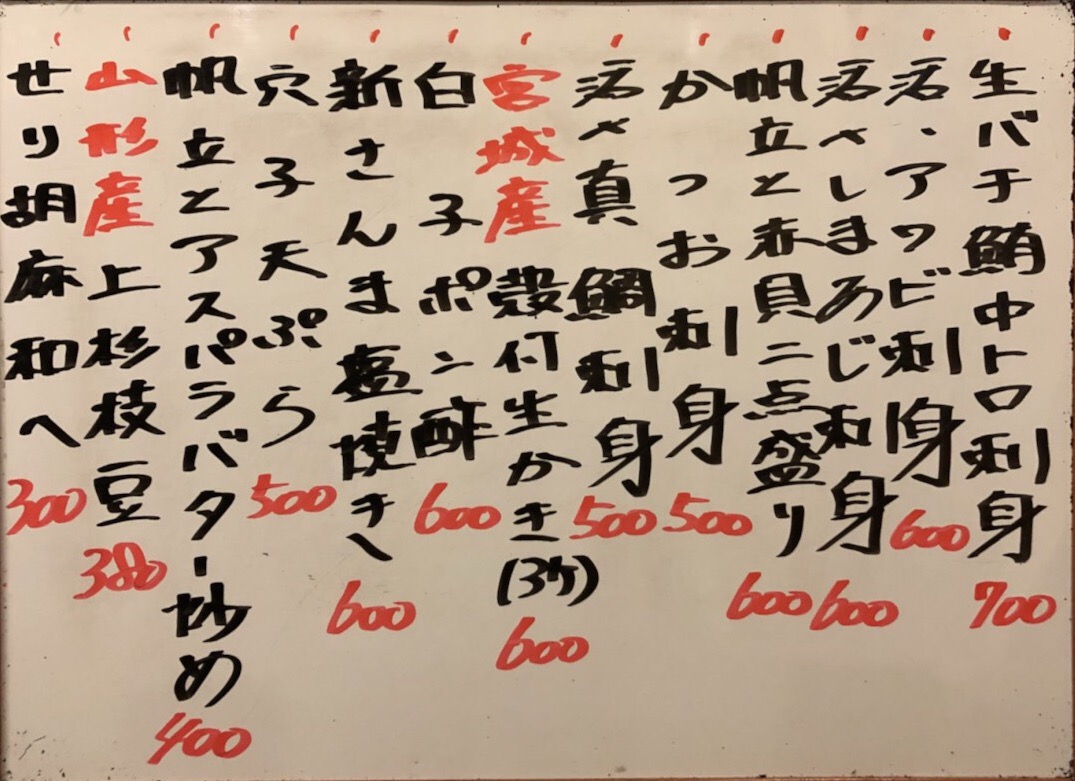 生バチ鮪中トロ刺身 700
活、アワビ刺身 600
活〆しまあじ刺身 600
帆立と赤貝二点盛り 600
かつお刺身 500
活〆真鯛刺身 500
宮城産殻付生かき(3ケ) 600
白子ポン酢 600
新さんま塩焼き 600
穴子天ぷら 500
帆立とアスパラバター炒め 400
山形産上杉枝豆 380
せり胡麻和へ 300